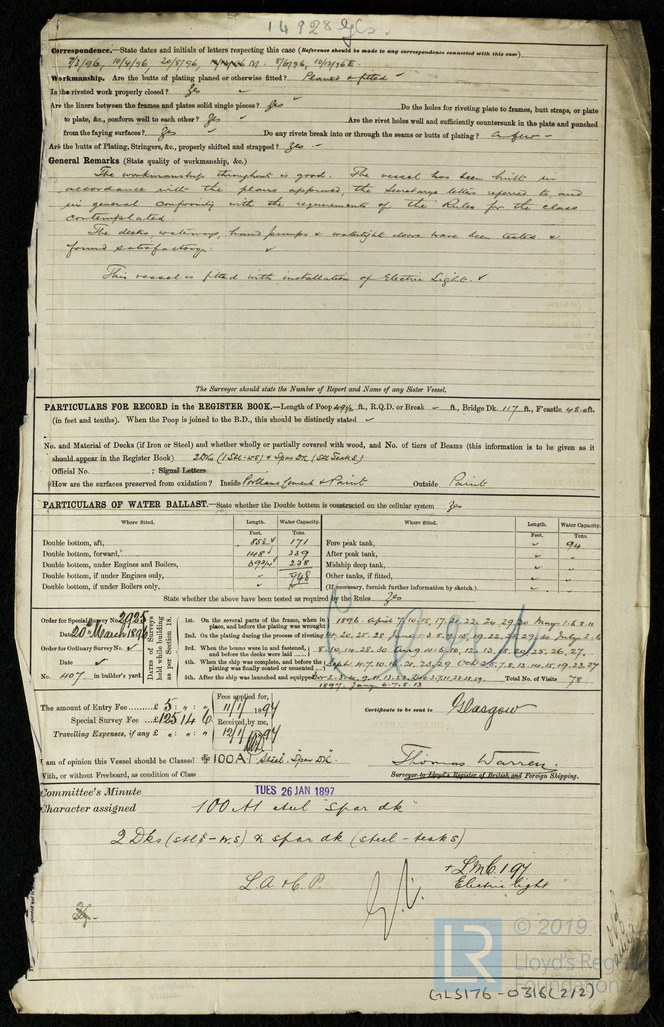 14928 Gls.
Correspondence.—State dates and initials of letters respecting this case (Reference should be made to any correspondence connected with this case)
7/3/96, 10/4/96, 20/8/96, M. 8/6/96, 10/12/96 E.
Workmanship. Are the butts of plating planed or otherwise fitted? Planed & fitted
Is the riveted work properly closed? Yes
Are the liners between the frames and plates solid single pieces? Yes Do the holes for riveting plate to frames, butt straps, or plate
to plate, &c., conform well to each other? Yes Are the rivet holes well and sufficiently countersunk in the plate and punched
from the faying surfaces? Yes Do any rivets break into or through the seams or butts of plating? A few
Are the butts of Plating, Stringers, &c., properly shifted and strapped? Yes
General Remarks (State quality of workmanship, &c.)
The workmanship throughout is good. The vessel has been built in
accordance with the plans approved, the Secretarys letters referred to, and
in general conformity with the requirements of the Rules for the class
contemplated.
The decks, waterways, hand pumps & watertight doors have been tested &
found satisfactory.
This vessel is fitted with installation of Electric Light.
The Surveyor should state the Number of Report and Name of any Sister Vessel.
PARTICULARS FOR RECORD in the REGISTER BOOK.—Length of Poop 49½ ft., R.Q.D. or Break - ft., Bridge Dk. 117 ft., F'castle 48.0 ft.
(in feet and tenths). When the Poop is joined to the B.D., this should be distinctly stated
No. and Material of Decks (if Iron or Steel) and whether wholly or partially covered with wood, and No. of tiers of Beams (this information is to be given as it
should appear in the Register Book) 2 Dks (1 Stl-WS) & Spar Dk (Stl Teak S)
Official No. ; Signal Letters
How are the surfaces preserved from oxidation? Inside Portland Cement & Paint Outside Paint
PARTICULARS OF WATER BALLAST.—State whether the Double bottom is constructed on the cellular system Yes
Where fitted. Length. Water Capacity. Where fitted. Length. Water Capacity.
Feet. Tons. Feet. Tons.
Double bottom, aft, 85½ 171 Fore peak tank, 94
Double bottom, forward, 148 339 After peak tank,
Double bottom, under Engines and Boilers, 59¾ 238 Midship deep tank,
Double bottom, if under Engines only, 948 Other tanks, if fitted,
Double bottom, if under Boilers only, (If necessary, furnish further information by sketch.)
State whether the above have been tested as required by the Rules Yes
Order for Special Survey No. 2925
Date 20th March 1896
Order for Ordinary Survey No.
Date
No. 407 in builder's yard.
Dates of Surveys held while building as per Section 18.
1st. On the several parts of the frame, when in place, and before the plating was wrought
2nd. On the plating during the process of riveting
3rd. When the beams were in and fastened, and before the decks were laid
4th. When the ship was complete, and before the plating was finally coated or cemented
5th. After the ship was launched and equipped
1897. Jany 4.7.8.13
Total No. of Visits 78
The amount of Entry Fee £ 5 : " : "
Special Survey Fee £ 125 14 6
Travelling Expenses, if any £ " : " : "
Fees applied for, 11/1/1897
Received by me, 12/1/97
Certificate to be sent to Glasgow
I am of opinion this Vessel should be Classed 100 A1 Steel "Spar Dk".
With, or without Freeboard, as condition of Class
Thomas Warren
Surveyor to Lloyd's Register of British and Foreign Shipping.
Committee's Minute TUES 26 JAN 1897
Character assigned 100 A1 steel "Spar dk"
2 Dks (stl & - W.S) & spar dk (steel-teak s)
L.A. & C.P.
+ L.M.C. 1.97
Electric light
© 2019
LR
Lloyd's Regis
Foundation
GLS176-0316(2/2)